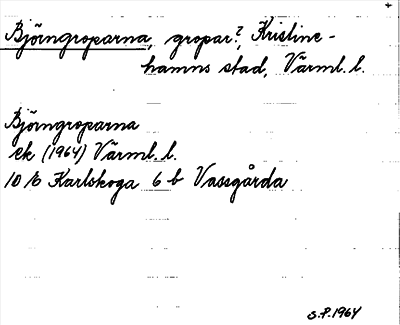 Björngroparna, gropar?, Kristine-
hamns stad, Värml. l.
Björngroparna
ek (1964) Värml. l.
10 E Karlskoga 6 b Vassgårda
S.P. 1964